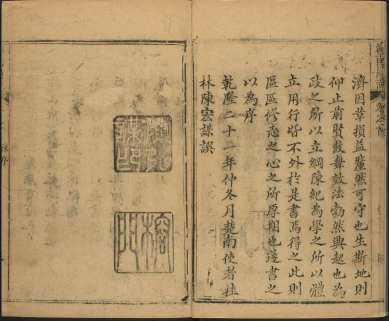 濟因革損益確然可守也生斯地則
仰止前賢鼓舞效法勃然興起也為
政之所以立綱陳紀為學之所以體
立用行皆不外於是書焉得之此則
區區修志之心之所厚期也遂書之
以為序
乾隆二十二年仲冬月楚南使者桂
林陳宏謀譔